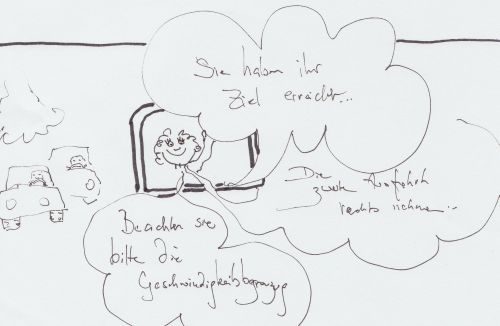 Sie haben ihr
Ziel erreicht...
Die
zweite Ausfahrt
rechts nehmen...
Beachten sie
bitte die
Geschwindigkeitsbegrenzung